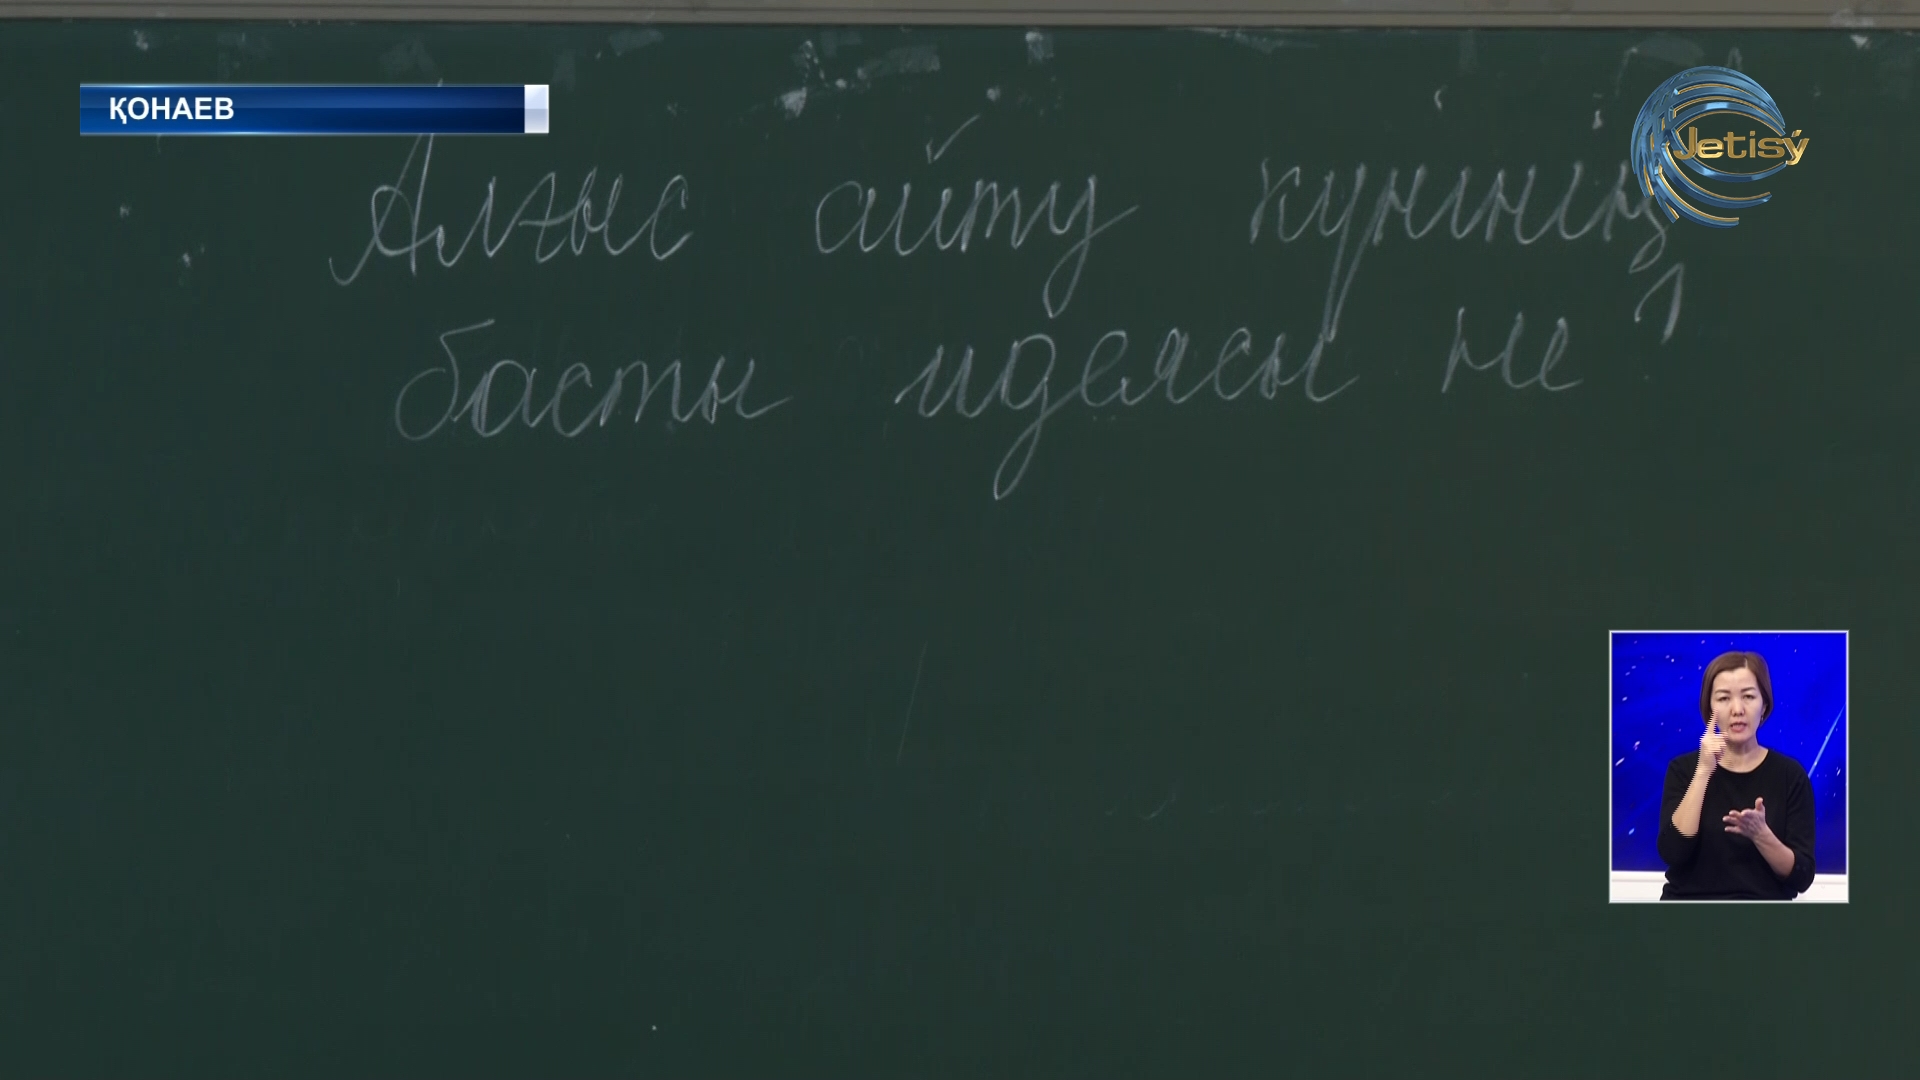 ҚОНАЕВ
Jetisý
Алғыс айту күнінің
басты идеясы не?